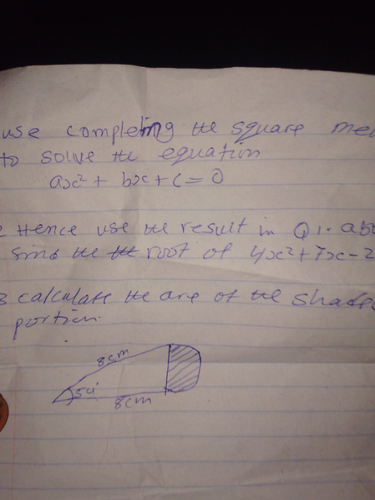 use completing the square me
to solve the equation
ax² + bx + c = 0
Hence use the result in Q1. ab
the root of 4x² + 7x - 2
3 calculate the are of the shade
portion.
8cm
8cm